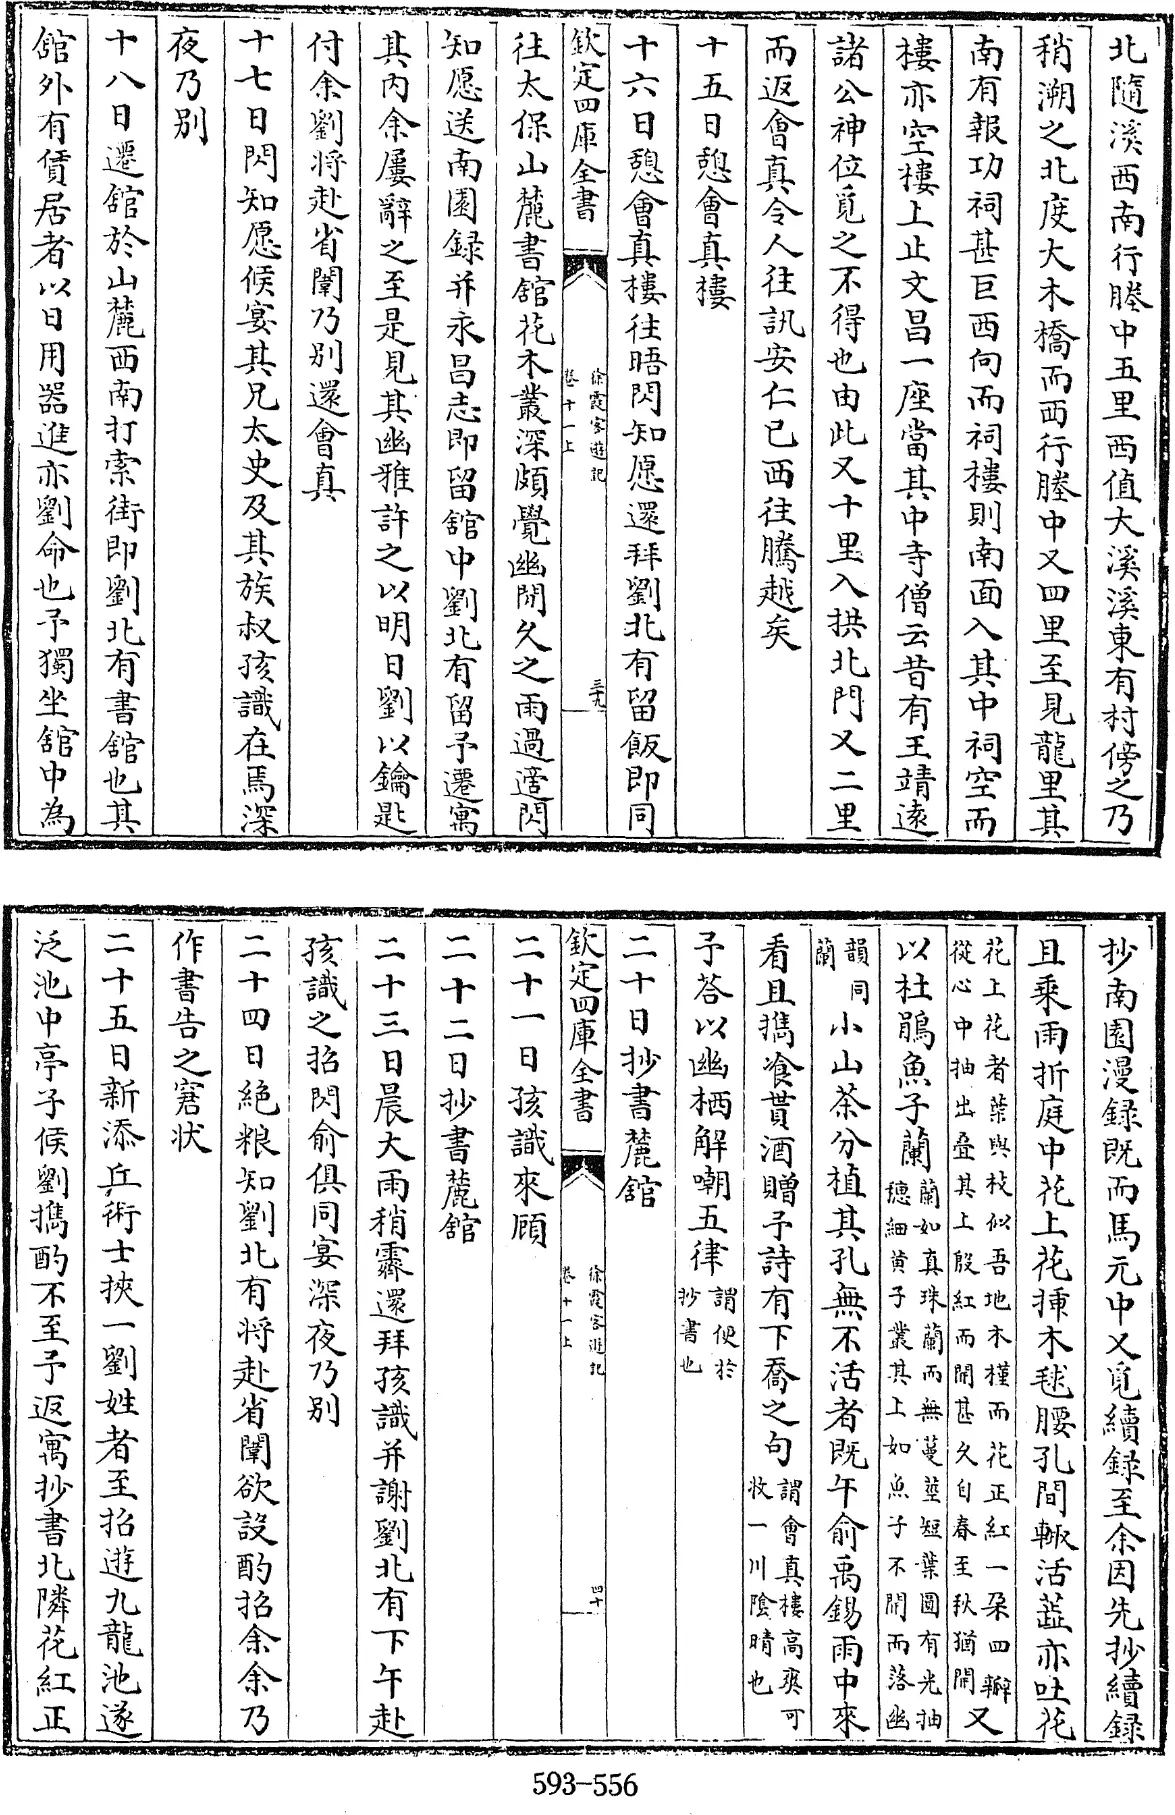 北隨溪西南行塍中五里西值大溪溪東有村傍之乃
稍溯之北度大木橋而西行塍中又四里至見龍里其
南有報功祠甚巨西向而祠樓則南面入其中祠空而
樓亦空樓上止文昌一座當其中寺僧云昔有王靖遠
諸公神位覓之不得也由此又十里入拱北門又二里
而返會真令人往訊安仁已西往騰越矣
十五日憩會真樓
十六日憩會真樓往晤閃知愿還拜劉北有留飯即同
欽定四庫全書
徐霞客遊記
卷十一上
三十九
往太保山麓書舘花木叢深頗覺幽閒久之雨過適閃
知愿送南園録并永昌志即留舘中劉北有留予遷寓
其内余屢辭之至是見其幽雅許之以明日劉以鑰匙
付余劉将赴省闈乃别還會真
十七日閃知愿候宴其兄太史及其族叔孩識在焉深
夜乃别
十八日遷舘於山麓西南打索街即劉北有書舘也其
舘外有賃居者以日用器進亦劉命也予獨坐舘中為
抄南園漫録既而馬元中又覓續録至余因先抄續録
且乘雨折庭中花上花揷木毬腰孔間輙活蕋亦吐花
花上花者葉與枝似吾地木槿而花正紅一朶四瓣
從心中抽出叠其上殷紅而開甚久自春至秋猶開
又
以杜鵑魚子蘭
蘭如真珠蘭而無蔓莖短葉圓有光抽
穗細黄子叢其上如魚子不開而落幽
韻同
蘭
小山茶分植其孔無不活者既午俞禹錫雨中來
看且攜飡貰酒贈予詩有下喬之句
謂會真樓高爽可
收一川陰晴也
予荅以幽栖解嘲五律
謂便於
抄書也
二十日抄書麓舘
欽定四庫全書
徐霞客遊記
卷十一上
四十
二十一日孩識來顧
二十二日抄書麓舘
二十三日晨大雨稍霽還拜孩識并謝劉北有下午赴
孩識之招閃俞俱同宴深夜乃别
二十四日絶粮知劉北有将赴省闈欲設酌招余余乃
作書告之窘状
二十五日新添丘術士挾一劉姓者至招遊九龍池遂
泛池中亭子候劉攜酌不至予返寓抄書北隣花紅正
593-556